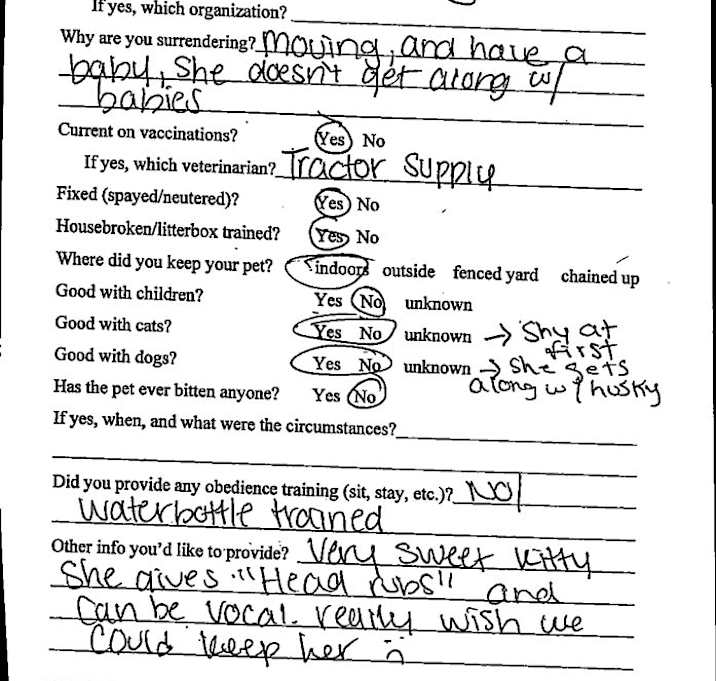 If yes, which organization?
Why are you surrendering? Moving, and have a
baby, She doesn't get along w/
babies
Current on vaccinations? Yes No
If yes, which veterinarian? Tractor Supply
Fixed (spayed/neutered)? Yes No
Housebroken/litterbox trained? Yes No
Where did you keep your pet? indoors outside fenced yard chained up
Good with children? Yes No unknown
Good with cats? Yes No unknown → Shy at
first
Good with dogs? Yes No unknown → She gets
along w/ husky
Has the pet ever bitten anyone? Yes No
If yes, when, and what were the circumstances?
Did you provide any obedience training (sit, stay, etc.)? NO
Waterbottle trained
Other info you'd like to provide? Very sweet kitty
She gives "Head rubs" and
Can be vocal. really wish we
Could keep her :(